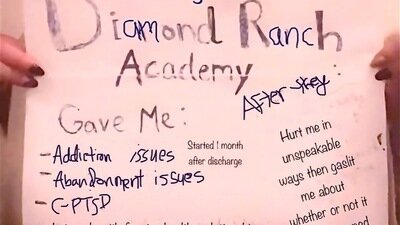 Diamond Ranch
Academy
Gave Me:
After they:
- Addiction issues
- Abandonment issues
- C-PTSD
Started 1 month
after discharge
Hurt me in
unspeakable
ways then gaslit
me about
whether or not it